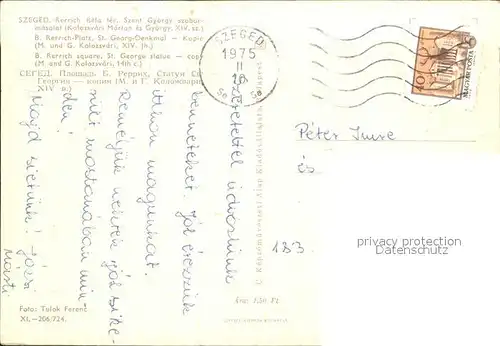 SZEGED. Rerrich Béla tér. Szent György szobor-
másolat (Kolozsvári Márton és György, XIV. sz.)
B. Rerrich-Platz, St. Georg-Denkmal — Kopie
(M. und G. Kolozsvári, XIV. Jh.)
B. Rerrich square, St. George statue — copy
(M. and G. Kolozsvári, 14th c.)
СЕГЕД. Площадь Б. Реррих, Статуя Св.
Георгия — копия (М. и Г.
XIV в.)
SZEGED
1975
II
Szeretettel üdvözlünk
benneteket. Jól érezzük
itthon magunkat.
Reméljük nektek jól sike-
rült mostanában min-
den!
Majd sietünk! Józsi
Márti
Foto: Tulok Ferenc
XI.—206/724.
Képzőművészeti Alap Kiadóvállalata, Budapest
Ára: 1,50 Ft.
MAGYAR POSTA
Péter Imre
és
183
Copyright protection
Datenschutz